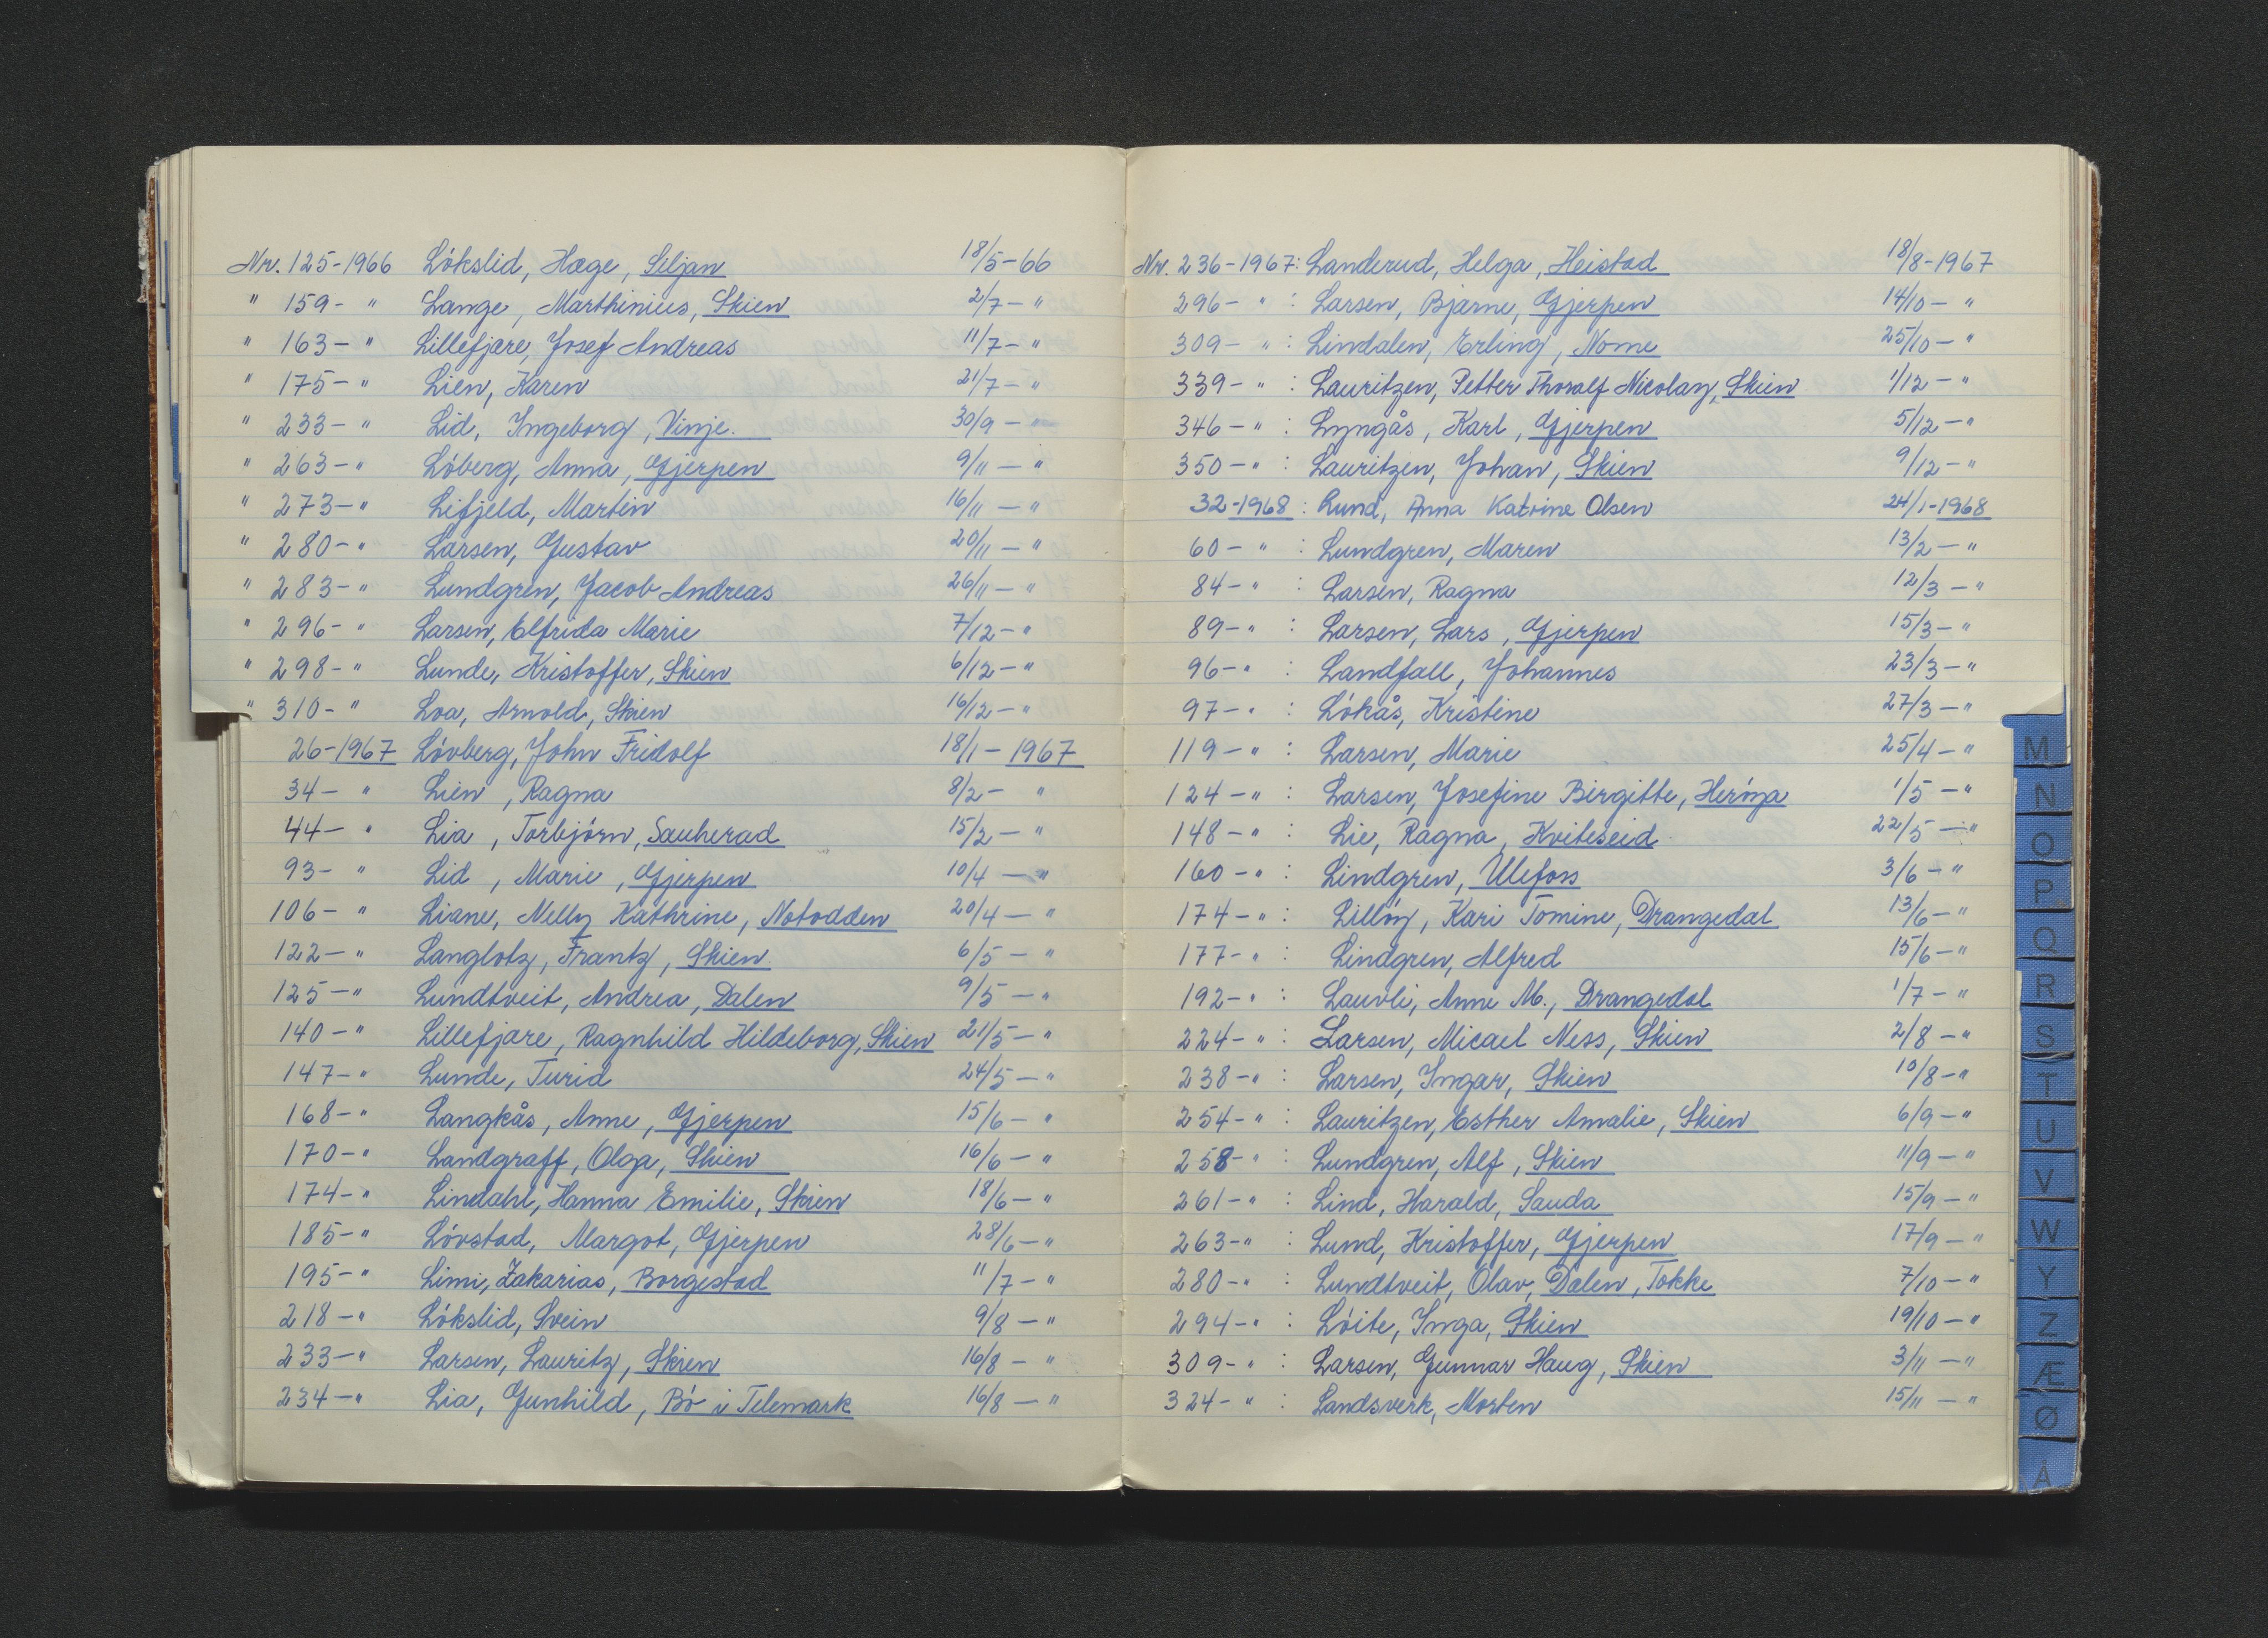 Nr. 125-1966 Lökslid, Hæge, Siljan 18/5-66
" 159- " Lange, Marthinius, Skien 2/7- "
" 163- " Lillefjære, Josef Andreas 11/7- "
" 175- " Lien, Karen 21/7- "
" 233- " Lid, Ingeborg, Vinje. 30/9- "
" 263- " Löberg, Anna, Gjerpen 9/11- "
" 273- " Lifjeld, Martin 16/11- "
" 280- " Larsen, Gustav 20/11- "
" 283- " Lundgren, Jacob Andreas 26/11- "
" 296- " Larsen, Elfrida Marie 7/12- "
" 298- " Lunde, Kristoffer, Skien 6/12- "
" 310- " Loa, Arnold, Skien 16/12- "
26-1967 Lövberg, John Fridolf 18/1-1967
34- " Lien, Ragna 8/2- "
44- " Lia, Torbjörn, Sauherad 15/2- "
93- " Lid, Marie, Gjerpen 10/4- "
106- " Liane, Nelly Kathrine, Notodden 20/4- "
122- " Langlotz, Frantz, Skien 6/5- "
125- " Lundtveit, Andrea, Dalen 9/5- "
140- " Lillefjære, Ragnhild Hildeborg, Skien 21/5- "
147- " Lunde, Turid 24/5- "
168- " Langkås, Anne, Gjerpen 15/6- "
170- " Landgraff, Olga, Skien 16/6- "
174- " Lindahl, Hanna Emilie, Skien 18/6- "
185- " Lövstad, Margot, Gjerpen 28/6- "
195- " Limi, Zakarias, Borgestad 11/7- "
218- " Lökslid, Svein 9/8- "
233- " Larsen, Lauritz, Skien 16/8- "
234- " Lia, Gunhild, Bö i Telemark 16/8- "
Nr. 236-1967: Landerud, Helga, Heistad 18/8-1967
296- " : Larsen, Bjarne, Gjerpen 14/10- "
309- " : Lindalen, Erling, Nome 25/10- "
339- " : Lauritzen, Petter Thoralf Nicolay, Skien 1/12- "
346- " : Lyngås, Karl, Gjerpen 5/12- "
350- " : Lauritzen, Johan, Skien 9/12- "
32-1968: Lund, Anna Katrine Olsen 24/1-1968
60- " : Lundgren, Maren 13/2- "
84- " : Larsen, Ragna 12/3- "
89- " : Larsen, Lars, Gjerpen 15/3- "
96- " : Landfall, Johannes 23/3- "
97- " : Lökås, Kristine 27/3- "
119- " : Larsen, Marie 25/4- "
124- " : Larsen, Josefine Birgitte, Heröya 1/5- "
148- " : Lie, Ragna, Kviteseid 22/5- "
160- " : Lindgren, Ulefoss 3/6- "
174- " : Lillöy, Kari Tomine, Drangedal 13/6- "
177- " : Lindgren, Alfred 15/6- "
192- " : Lauvli, Anne M., Drangedal 1/7- "
224- " : Larsen, Micael Ness, Skien 2/8- "
238- " : Larsen, Ingar, Skien 10/8- "
254- " : Lauritzen, Esther Amalie, Skien 6/9- "
258- " : Lundgren, Alf, Skien 11/9- "
261- " : Lind, Harald, Sauda 15/9- "
263- " : Lund, Kristoffer, Gjerpen 17/9- "
280- " : Lundtveit, Olav, Dalen, Tokke 7/10- "
294- " : Löite, Inga, Skien 19/10- "
309- " : Larsen, Gunnar Haug, Skien 3/11- "
324- " : Landsverk, Morten 15/11- "
M
N
O
P
Q
R
S
T
U
V
W
Y
Z
Æ
Ø
Å